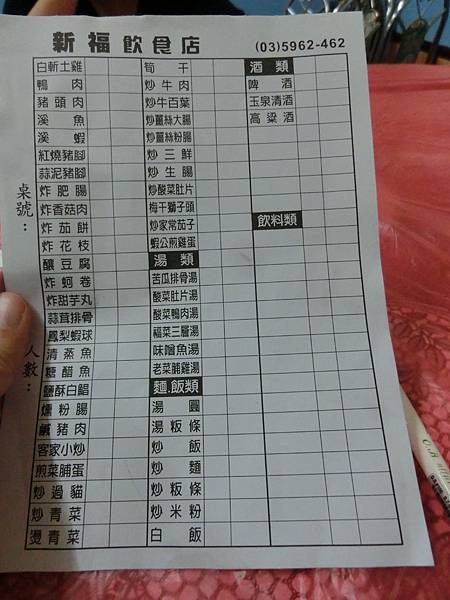 新福飲食店
(03)5962-462
桌號：
人數：
白斬土雞
鴨肉
豬頭肉
溪魚
溪蝦
紅燒豬腳
蒜泥豬腳
炸肥腸
炸香菇肉
炸茄餅
炸花枝
釀豆腐
炸蚵卷
炸甜芋丸
蒜茸排骨
鳳梨蝦球
清蒸魚
糖醋魚
鹽酥白鯧
燻粉腸
鹹豬肉
客家小炒
煎菜脯蛋
炒過貓
炒青菜
燙青菜
筍干
炒牛肉
炒牛百葉
炒薑絲大腸
炒薑絲粉腸
炒三鮮
炒生腸
炒酸菜肚片
梅干獅子頭
炒家常茄子
蝦公煎雞蛋
湯類
苦瓜排骨湯
酸菜肚片湯
酸菜鴨肉湯
福菜三層湯
味噌魚湯
老菜脯雞湯
麵.飯類
湯圓
湯粄條
炒飯
炒麵
炒粄條
炒米粉
白飯
酒類
啤酒
玉泉清酒
高粱酒
飲料類